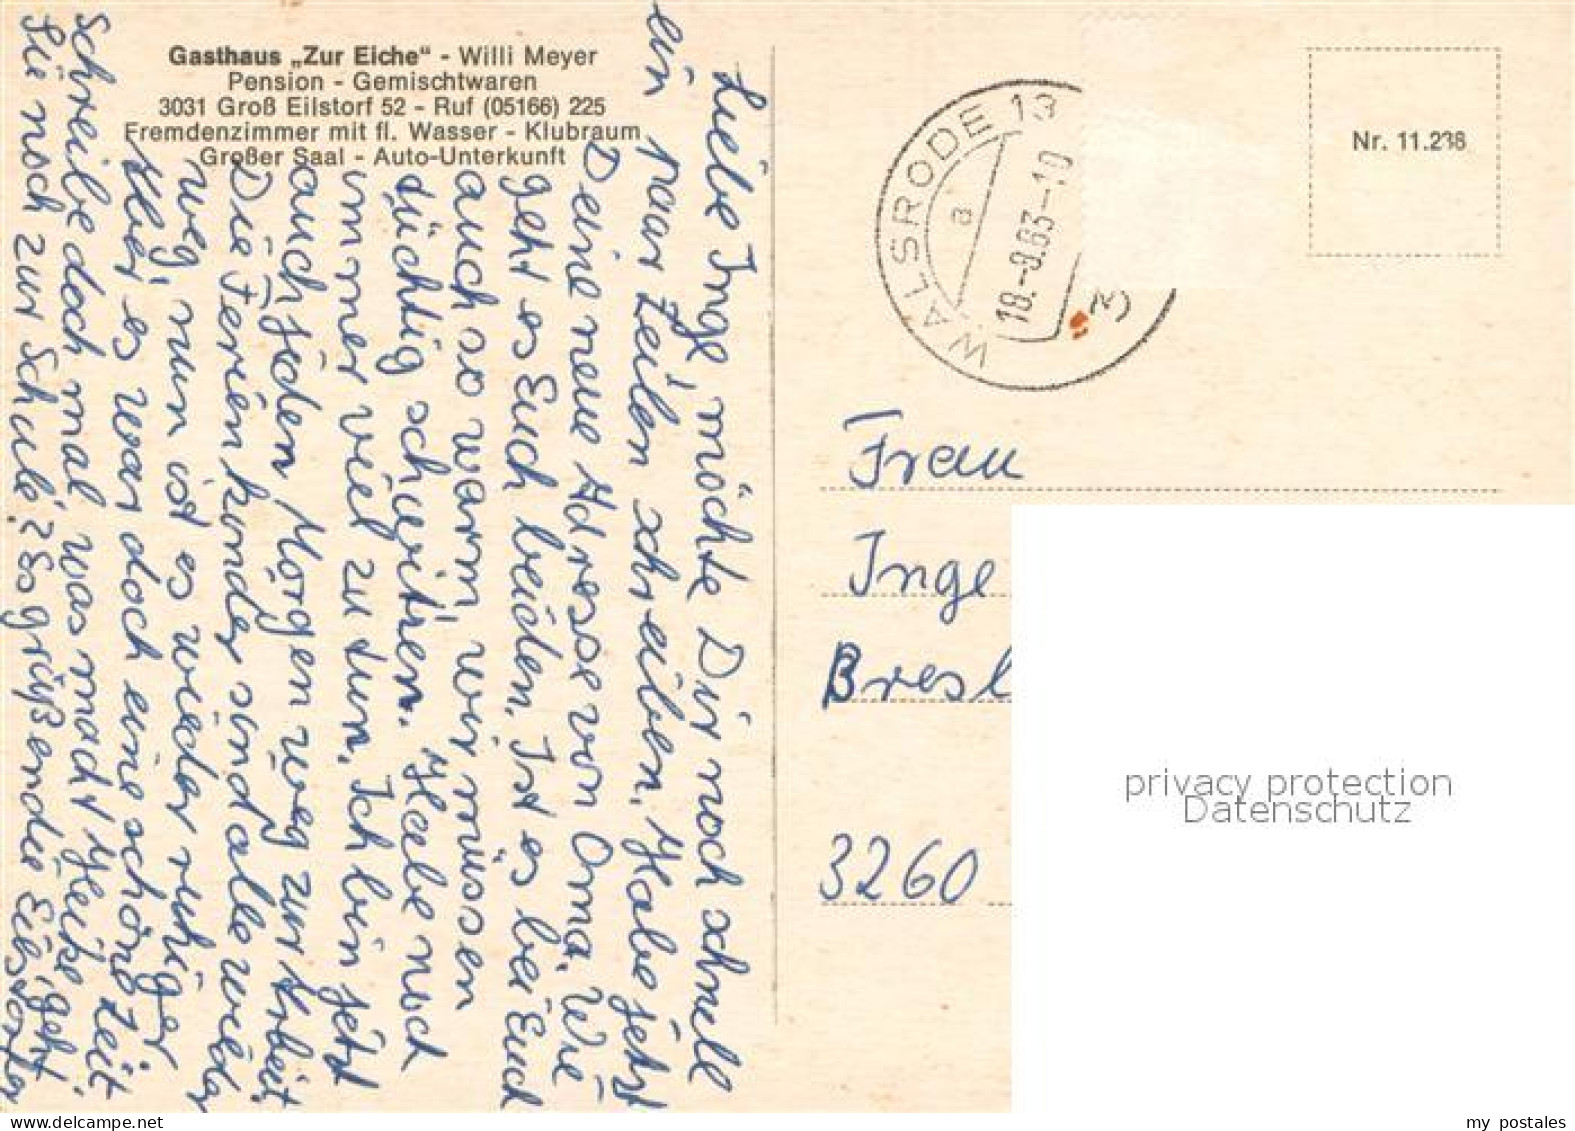 Gasthaus „Zur Eiche“ - Willi Meyer
Pension - Gemischtwaren
3031 Groß Eilstorf 52 - Ruf (05166) 225
Fremdenzimmer mit fl. Wasser - Klubraum
Großer Saal - Auto-Unterkunft
Liebe Inge, möchte Dir noch schnell
ein paar Zeilen schreiben. Habe jetzt
Deine neue Adresse von Oma. Wie
geht es Euch beiden. Ist es bei Euch
auch so warm, wir müssen
tüchtig schwitzen. Habe noch
immer viel zu tun. Ich bin jetzt
auch jeden Morgen weg zur Arbeit
Die Ferienkinder sind alle wieder
weg, nun ist es wieder ruhiger
Aber es war doch eine schöne Zeit
schreibe doch mal was macht Heike, geht
Sie noch zur Schule? Es grüßen die Eilstorfer
WALSRODE 13
a
18.-8.83-10
3
Nr. 11.238
Frau
Inge
Bresl
3260
privacy protection
Datenschutz
www.delcampe.net
my_postales